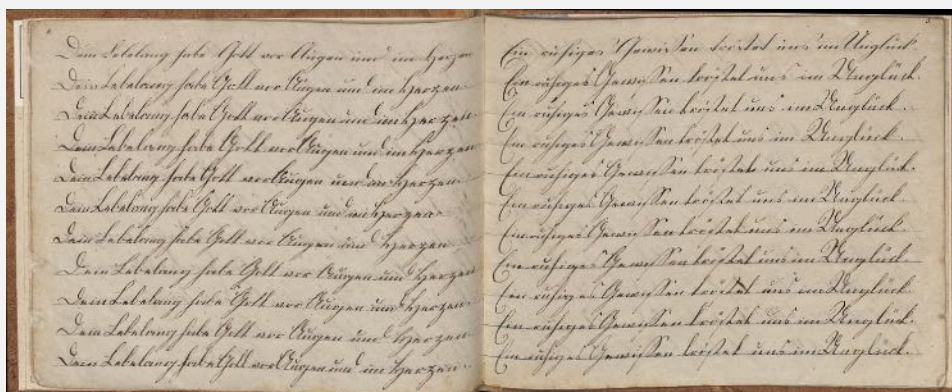 Dein Lebelang habe Gott vor Augen und im Herzen
Dein Lebelang habe Gott vor Augen und im Herzen.
Dein Lebelang habe Gott vor Augen und im Herzen.
Dein Lebelang habe Gott vor Augen und im Herzen.
Dein Lebelang habe Gott vor Augen und im Herzen.
Dein Lebelang habe Gott vor Augen und im Herzen.
Dein Lebelang habe Gott vor Augen und Herzen.
Dein Lebelang habe Gott vor Augen und Herzen
Dein Lebelang habe Gott vor Augen und Herzen.
Dein Lebelang habe Gott vor Augen und Herzen.
Dein Lebelang habe Gott vor Augen und im Herzen.
Ein ruhiges Gewissen tröstet uns im Unglück.
Ein ruhiges Gewissen tröstet uns im Unglück.
Ein ruhiges Gewissen tröstet uns im Unglück.
Ein ruhiges Gewissen tröstet uns im Unglück.
Ein ruhiges Gewissen tröstet uns im Unglück.
Ein ruhiges Gewissen tröstet uns im Unglück.
Ein ruhiges Gewissen tröstet uns im Unglück.
Ein ruhiges Gewissen tröstet uns im Unglück.
Ein ruhiges Gewissen tröstet uns im Unglück.
Ein ruhiges Gewissen tröstet uns im Unglück.
Ein ruhiges Gewissen tröstet uns im Unglück.